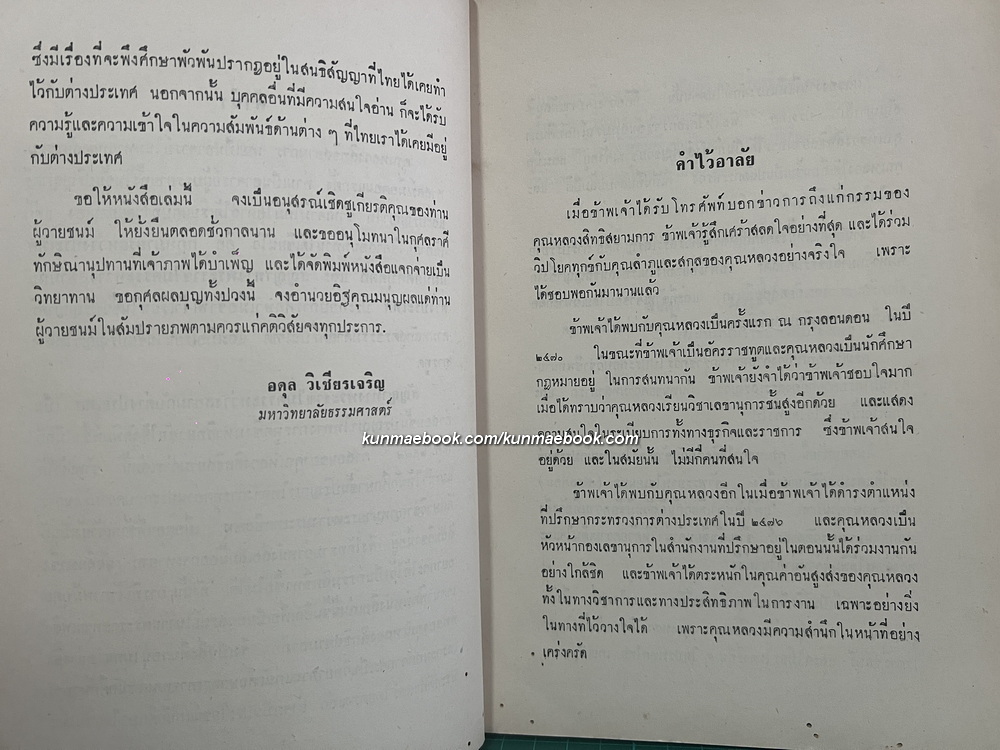 ซึ่งมีเรื่องที่จะพึงศึกษาพัวพันปรากฏอยู่ในสนธิสัญญาที่ไทยได้เคยทำ
ไว้กับต่างประเทศ นอกจากนั้น บุคคลอื่นที่มีความสนใจอ่าน ก็จะได้รับ
ความรู้และความเข้าใจในความสัมพันธ์ด้านต่าง ๆ ที่ไทยเราได้เคยมีอยู่
กับต่างประเทศ
ขอให้หนังสือเล่มนี้ จงเป็นอนุสรณ์เชิดชูเกียรติคุณของท่าน
ผู้วายชนม์ ให้ยั่งยืนตลอดชั่วกาลนาน และขออนุโมทนาในกุศลราศี
ทักษิณานุปทานที่เจ้าภาพได้บำเพ็ญ และได้จัดพิมพ์หนังสือแจกจ่ายเป็น
วิทยาทาน ขอกุศลผลบุญทั้งปวงนี้ จงอำนวยอิฐคุณมนุญผลแด่ท่าน
ผู้วายชนม์ในสัมปรายภพตามควรแก่คติวิสัยจงทุกประการ.
อดุล วิเชียรเจริญ
มหาวิทยาลัยธรรมศาสตร์
kunmaebook.com/kunmaebook.com
คำไว้อาลัย
เมื่อข้าพเจ้าได้รับโทรศัพท์บอกข่าวการถึงแก่กรรมของ
คุณหลวงสิทธิสยามการ ข้าพเจ้ารู้สึกเศร้าสลดใจอย่างที่สุด และได้ร่วม
วิปโยคทุกข์กับคุณลำภูและสกุลของคุณหลวงอย่างจริงใจ เพราะ
ได้ชอบพอกันมานานแล้ว
ข้าพเจ้าได้พบกับคุณหลวงเป็นครั้งแรก ณ กรุงลอนดอน ในปี
๒๔๗๐ ในขณะที่ข้าพเจ้าเป็นอัครราชทูตและคุณหลวงเป็นนักศึกษา
กฎหมายอยู่ ในการสนทนากัน ข้าพเจ้ายังจำได้ว่าข้าพเจ้าชอบใจมาก
เมื่อได้ทราบว่าคุณหลวงเรียนวิชาเลขานุการชั้นสูงอีกด้วย และแสดง
ความสนใจในระเบียบการทั้งทางธุรกิจและราชการ ซึ่งข้าพเจ้าสนใจ
อยู่ด้วย และในสมัยนั้น ไม่มีกี่คนที่สนใจ
ข้าพเจ้าได้พบกับคุณหลวงอีกในเมื่อข้าพเจ้าได้ดำรงตำแหน่ง
ที่ปรึกษากระทรวงการต่างประเทศในปี ๒๔๗๖ และคุณหลวงเป็น
หัวหน้ากองเลขานุการในสำนักงานที่ปรึกษาอยู่ในตอนนั้นได้ร่วมงานกัน
อย่างใกล้ชิด และข้าพเจ้าได้ตระหนักในคุณค่าอันสูงส่งของคุณหลวง
ทั้งในทางวิชาการและทางประสิทธิภาพในการงาน เฉพาะอย่างยิ่ง
ในทางที่ไว้วางใจได้ เพราะคุณหลวงมีความสำนึกในหน้าที่อย่าง
เคร่งครัด